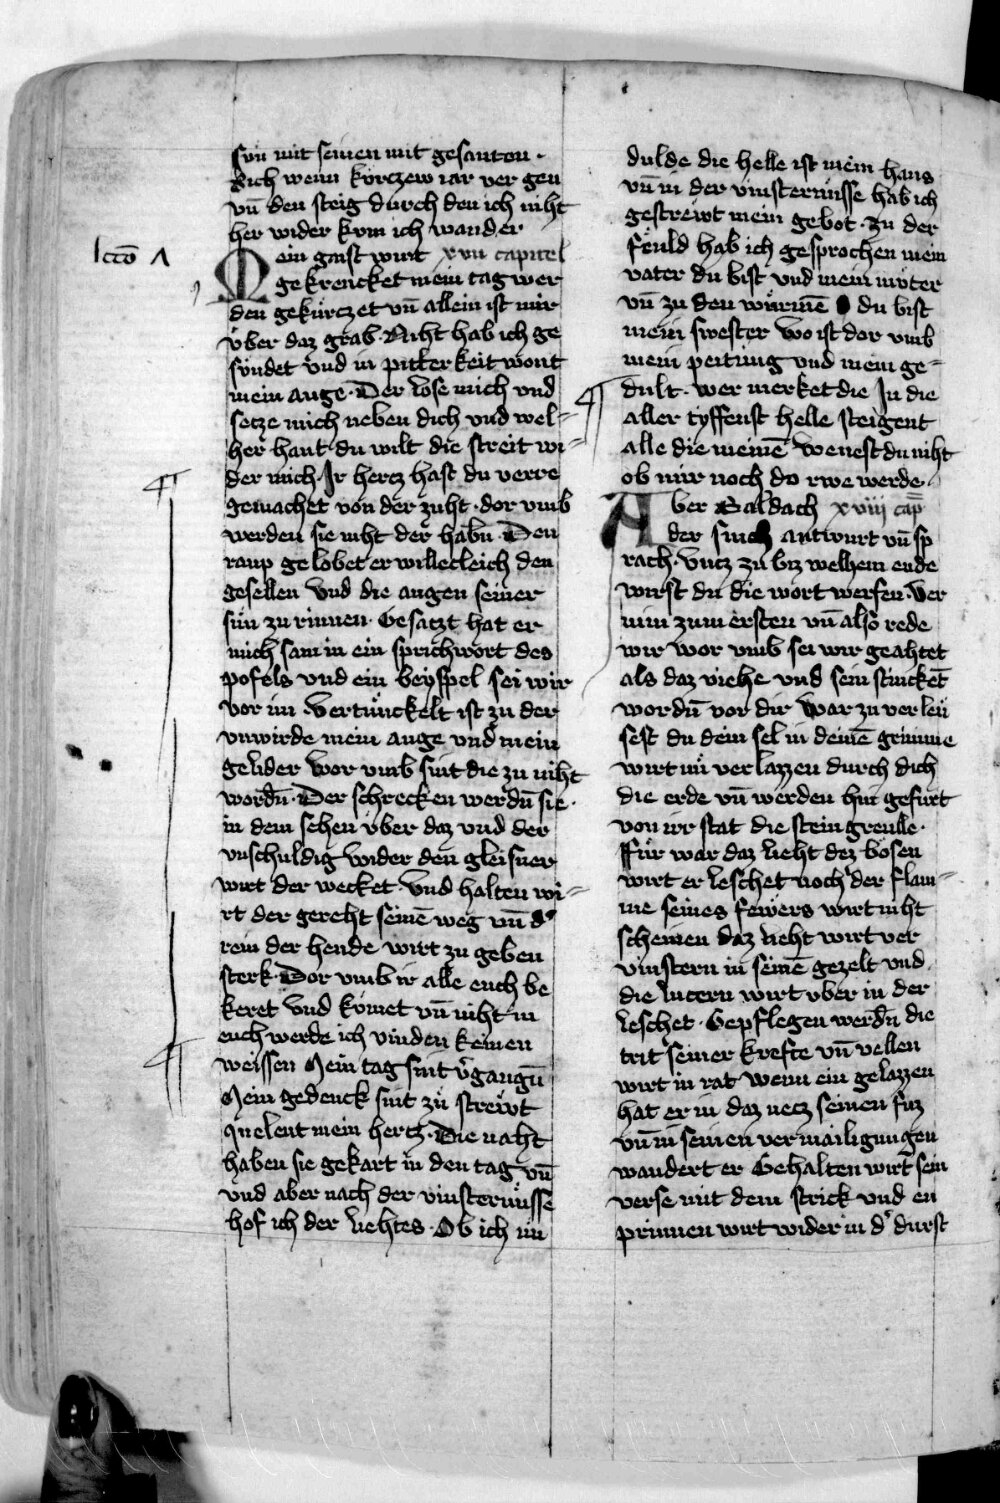 sun mit seinen mit gesanten ·
Sich wenn kurczew iar ver gen
vn̄ den steig durch den ich niht
her wider kum ich wander
lctō A
Mein gaist wirt xvii capitel
gekrencket mein tag wer
den gekürczet vn̄ allein ist mir
über daz grab · Niht hab ich ge
sundet vnd in pitterkeit wont
mein auge · Der lose mich vnd
secze mich neben dich vnd wel=
her hant du wilt die streit wi=
der mich · Ir hercz hast du verre
gemachet von der zuht · dor vmb
werden sie niht der habn̄ · Den
raup gelobet er willecleich den
gesellen vnd die augen seiner
sün zu rinnen · Gesaczt hat er
mich sam in ein sprichwort des
pofels vnd ein beyspel sei wir
vor im · Vertunckelt ist zu der
vnwirde mein auge vnd mein
gelider wor vmb sint die zu niht
wordn̄ · Der schrecken werdn̄ sie ·
in dem sehen über daz vnd der
vnschuldig wider den gleisner
wirt der wecket · Vnd halten wi=
rt der gereht seinē weg vn̄ d'
rein der hende wirt zu geben
sterk · Dor vmb ir alle euch be
keret vnd kumet vn̄ niht in
euch werde ich vinden keinen
weissen Mein tag sint v'gangn̄
Mein gedenck sint zu strewt
quelent mein hertz · Die naht
haben sie gekart in den tag vn̄
vnd aber nach der vinsternüsse
hof ich der liehtes · Ob ich im
dulde die helle ist mein haus
vn̄ in der vinsternüsse hab ich
gestrewt mein gebot · Zu der
feuld hab ich gesprochen mein
vater du bist vnd mein müter
vn̄ zu den würmē du bist
mein swester wo ist dor vmb
mein peitung vnd mein ge=
dult · wer merket die In die
aller tyffenst helle steigent
alle die meinē wenest du niht
ob mir noch do rwe werde ·
Aber Baldach xviii cap̄
der suich antwurt vn̄ sp
rach · Vncz zu biz welhem ende
wirst du die wort werfen · Ver
nim zum ersten vn̄ also rede
wir wor vmb sei wir geahtet
als daz viehe vnd sein stinckēt
wordn̄ vor dir War zu verleü
sest du dein sel in deinē grimme
wirt nü verlazzen durch dich
die erde vn̄ werden hin gefürt
von irr stat die stein greulle ·
Für war daz lieht dez bösen
wirt er leschet noch der flam=
me seines fewers wirt niht
scheinen daz lieht wirt ver
vinstern in seinē gezelt vnd
die lucern wirt vber in der
leschet · Gepflegen werdn̄ die
trit seiner krefte vn̄ vellen
wirt in rat wenn ein gelazzen
hat er in daz necz seinen fuz
vn̄ in seinen vermailigungen
wandert er Gehalten wirt sein
verse mit dem strick vnd en
prinnen wirt wider in d' durst